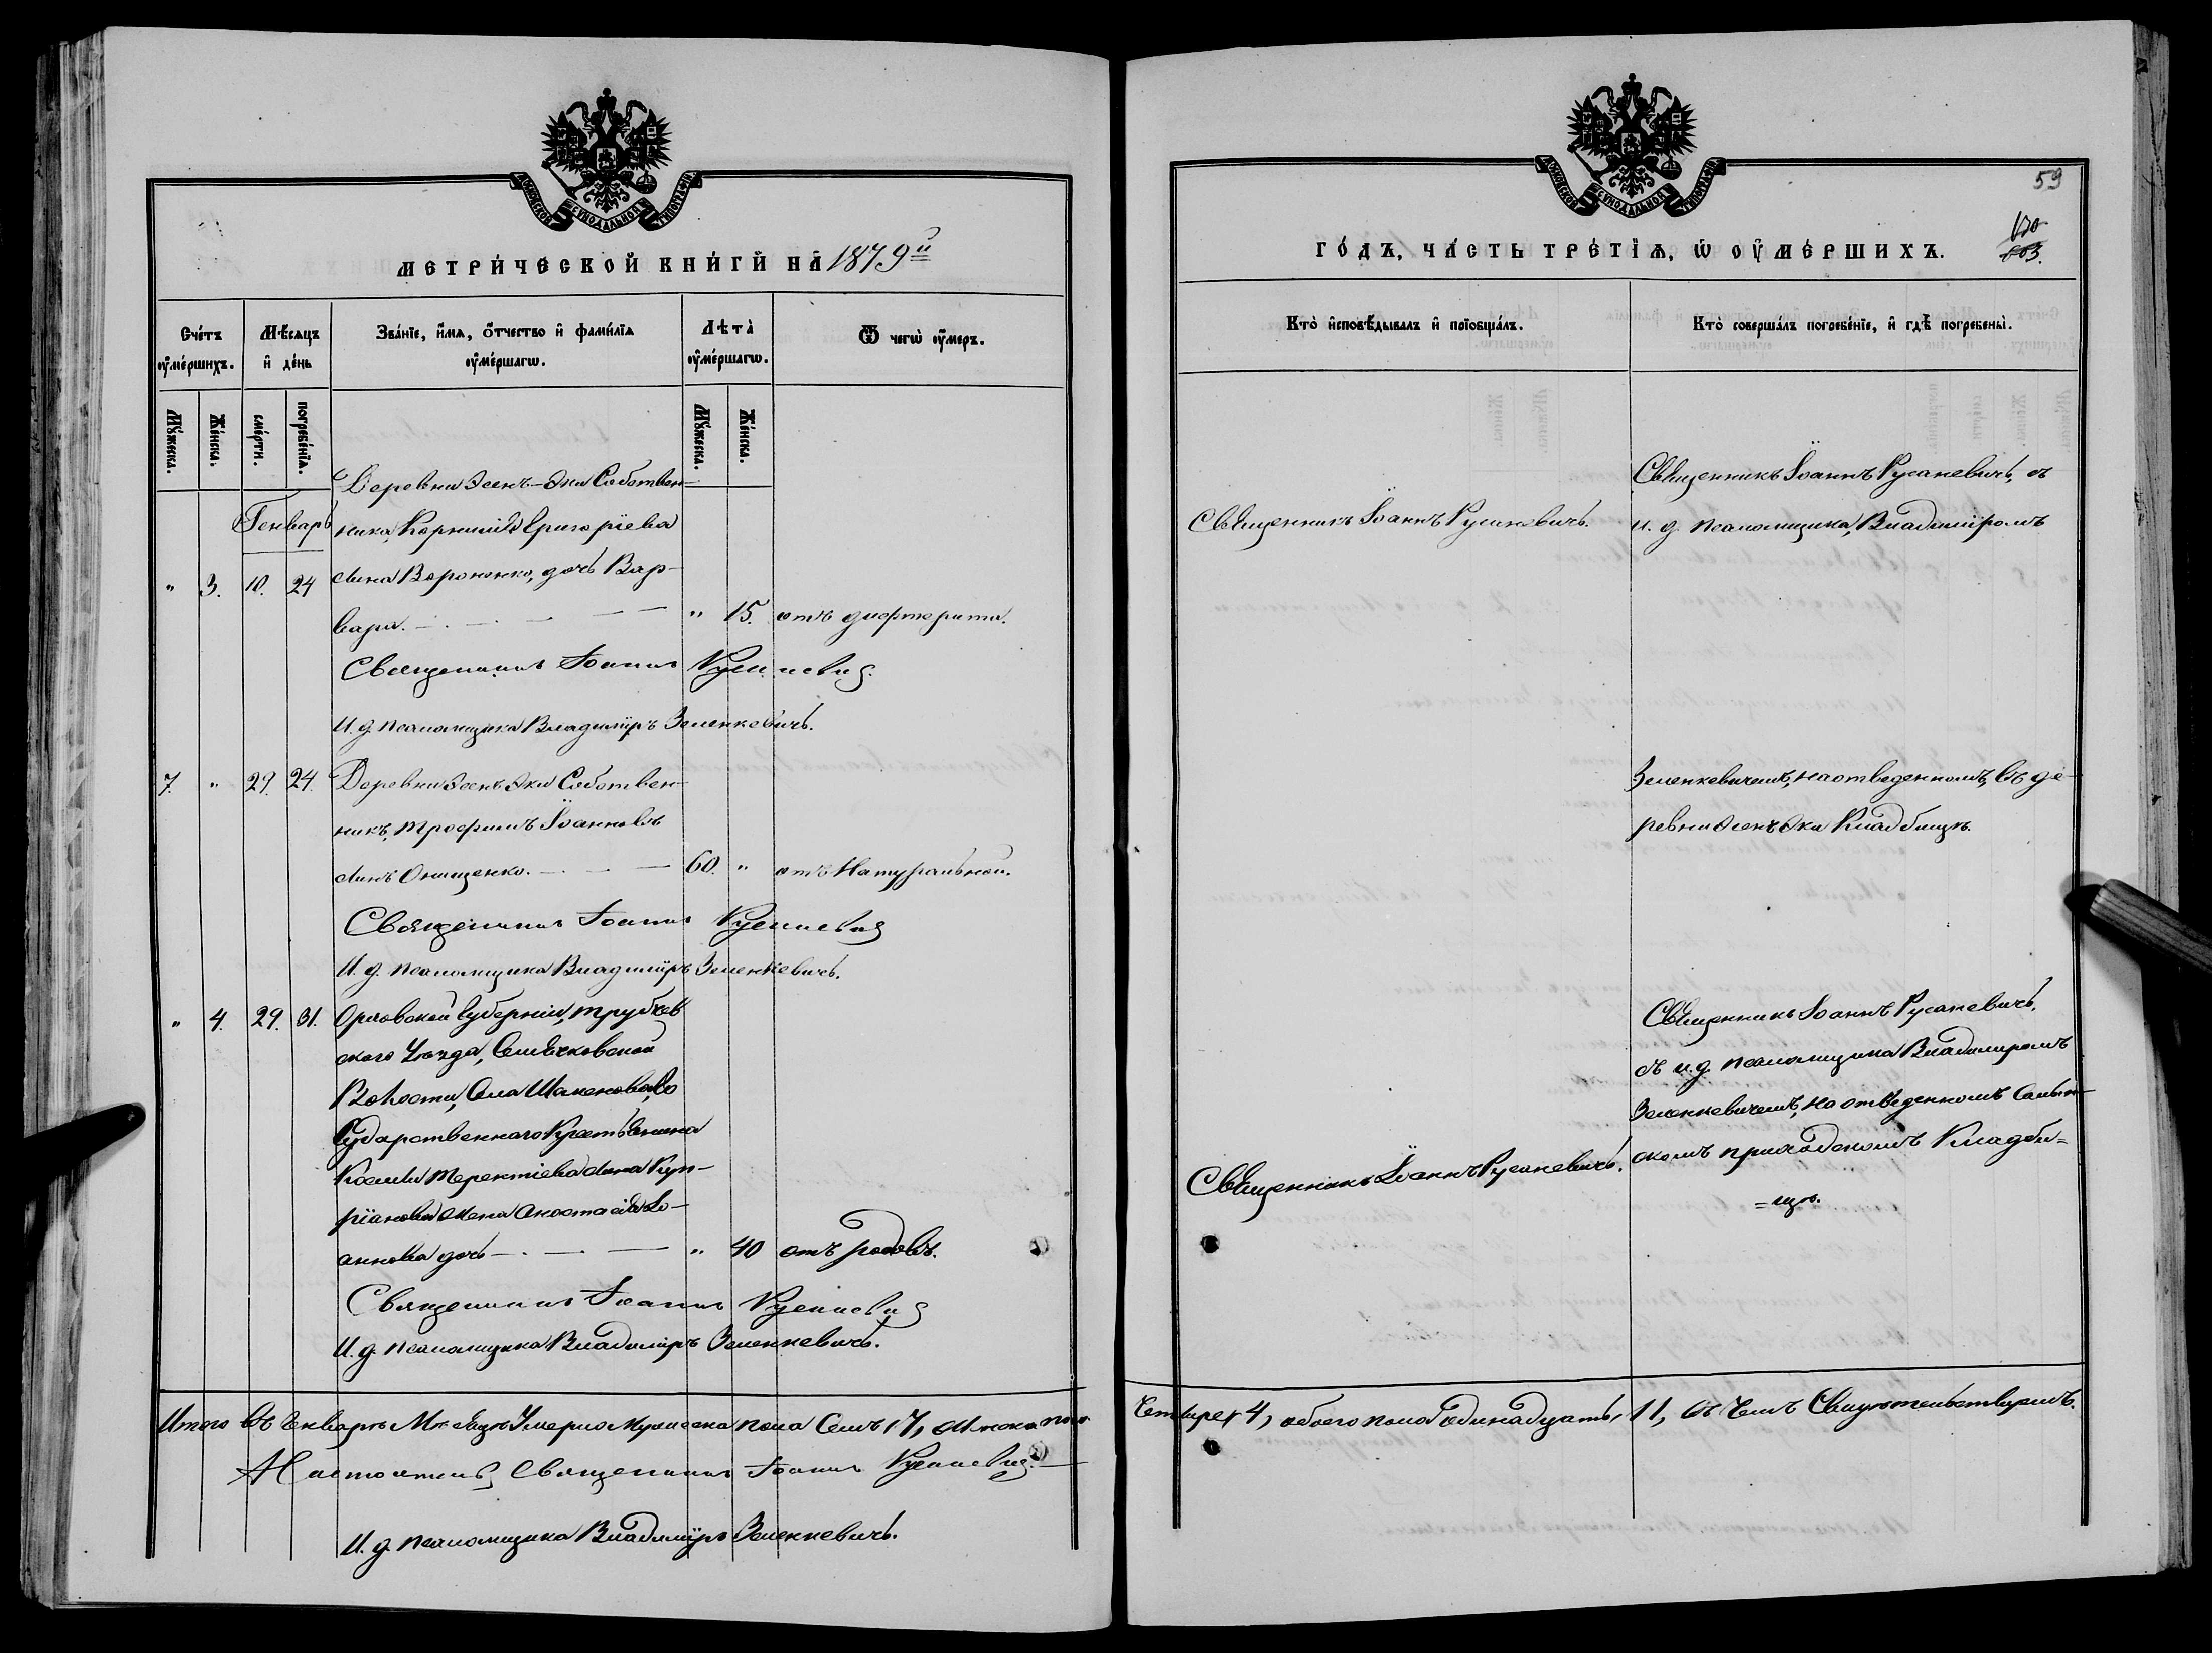 МОСКОВСКОЙ СѴНОДАЛЬНОЙ ТИПОГРАФІИ
МЕТРИ́ЧЕСКОЙ КНИ́ГИ НА 1879й
Сче́тъ оумéршихъ.
Мѣ́сяцъ и де́нь
Зва́нїе, и́мя, ѻ́тчество и фами́лїя оуме́ршагѡ.
Лѣта̀ оуме́ршагѡ.
Ѿ чегѡ̀ оу́меръ.
Мꙋ́жеска.
Же́нска.
сме́рти.
погребе́нїя.
Мꙋ́жеска.
Же́нска.
Генварь
Деревни Эсенъ-Эки Собствен-
ника, Корнилія Григоріева
" 3. 18. 24 сына Вороненко, дочь Вар-
вара. " 15. отъ дифтерита.
Священникъ Іоаннъ Русаневич.
И. д. псаломщика Владиміръ Зеленкевичъ.
7. " 22. 24. Деревни Эсенъ Эки Собствен-
никъ, Трофимъ Іоанновъ
сынъ Онищенко. 60. " отъ Натуральной.
Священникъ Іоаннъ Русаневич
И. д. псаломщика Владиміръ Зеленкевичъ.
" 4. 29. 31. Орловской Губерніи, Трубчев
скаго Уѣзда,
Волости, Села
Государственнаго Крестьянина
Космы Терентіева сына Куп-
ріанова жена Анастасія Іо-
аннова дочь " 40 отъ родовъ.
Священникъ Іоаннъ Русаневич
И. д. псаломщика Владиміръ Зеленкевичъ.
Итого въ Генварѣ Мѣсяцѣ Умерло Мужеска пола Семь 7, Женска пола
Настоятель Священникъ Іоаннъ Русаневич.
И. д. псаломщика Владиміръ Зеленкевичъ.
МОСКОВСКОЙ СѴНОДАЛЬНОЙ ТИПОГРАФІИ
59
ГО́ДЪ, ЧА́СТЬ ТРЕ́ТІѦ, Ѡ ОУМЕ́РШИХЪ.
603.
Кто̀ исповѣ́дывалъ и прїобща́лъ.
Кто̀ соверша́лъ погребе́нїе, и гдѣ̀ погребены̀.
Священникъ Іоаннъ Русаневичъ.
Священникъ Іоаннъ Русаневичъ, съ
и. д. псаломщика, Владиміромъ
Зеленкевичемъ, на отведенномъ, въ де-
ревни Эсенъ Эки Кладбищѣ.
Священникъ Іоаннъ Русаневичъ.
Священникъ Іоаннъ Русаневичъ,
съ и. д. псаломщика Владимиромъ
Зеленкевичемъ, на отведенномъ
скомъ приходскомъ Кладби=
=щѣ.
Четыре, 4, обоего пола одинадцать, 11, въ чемъ Свидѣтельствуемъ.